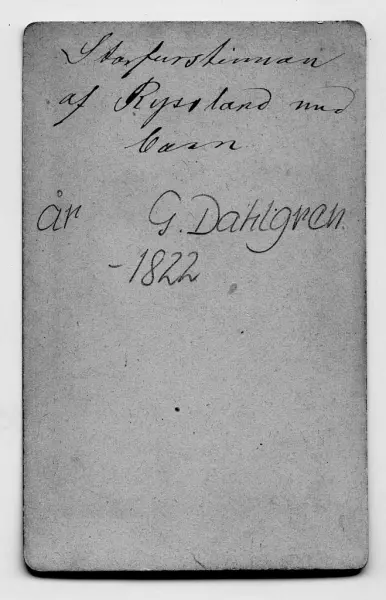 Storfurstinnan
af Ryssland med
barn
år G. Dahlgren
-1822